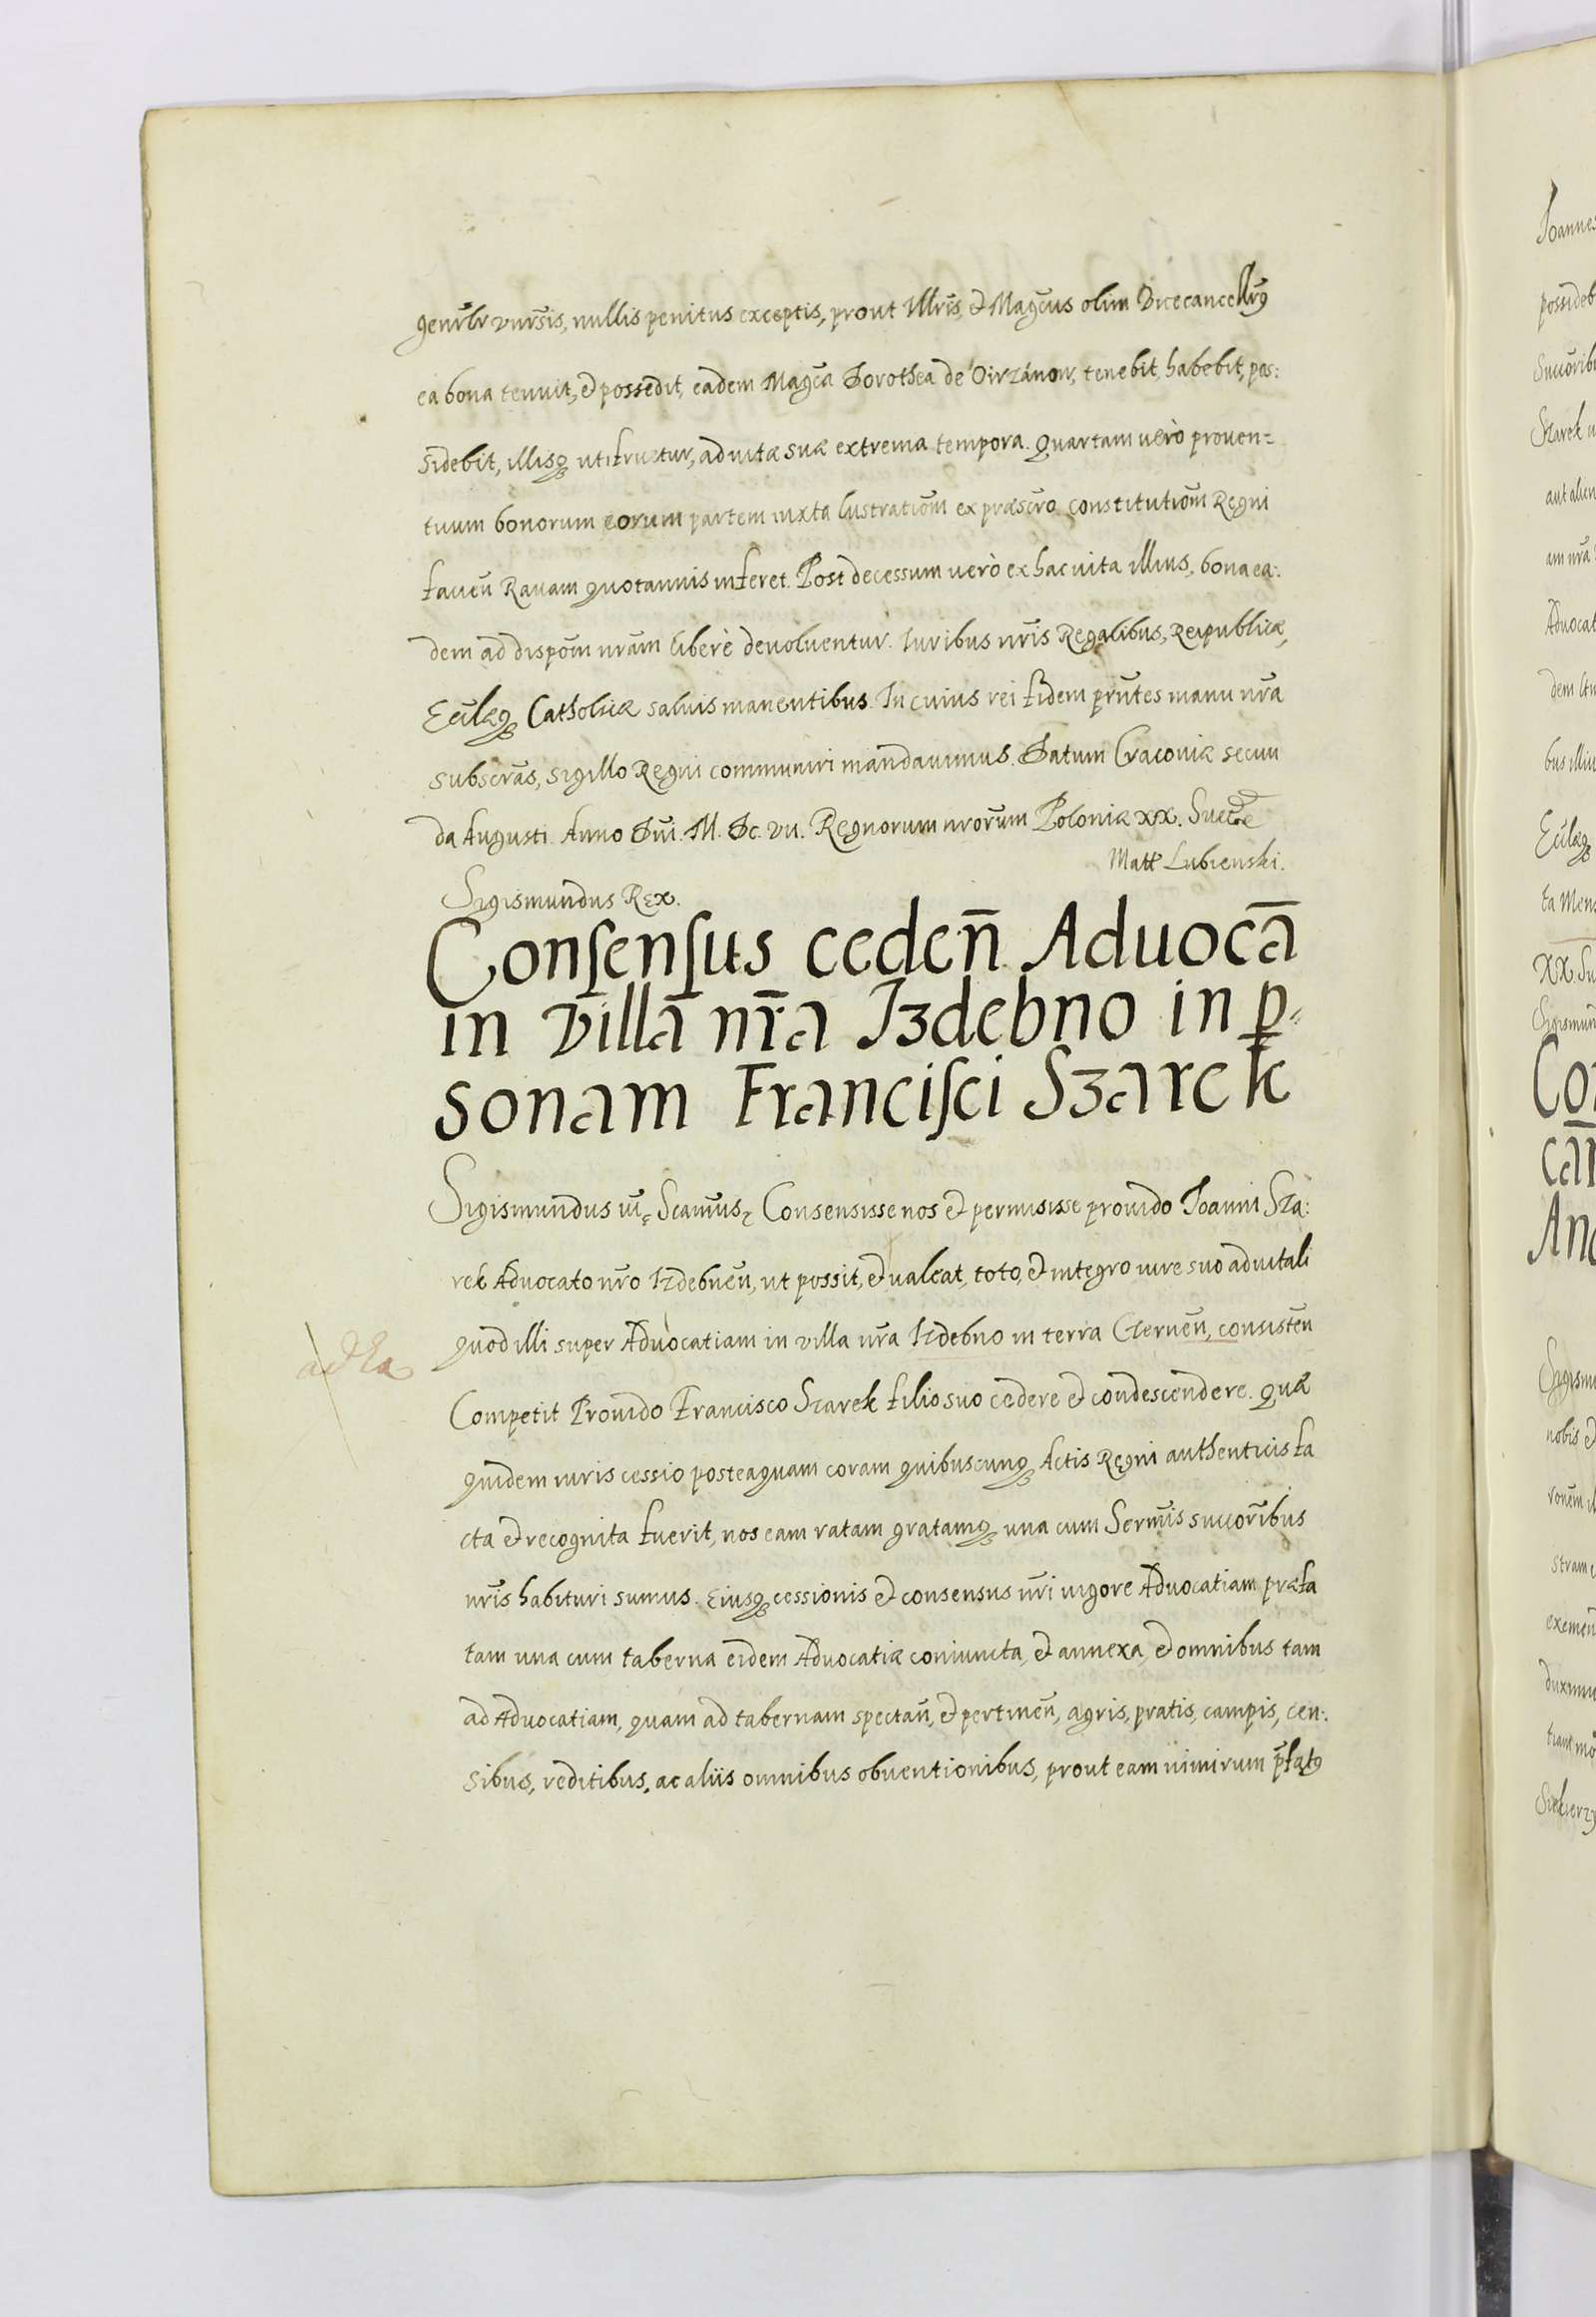 genrlr vnrsis, nullis penitus exceptis, prout Illris, et Magcus olim Vicecancellrius
ea bona tenuit, et possedit, eadem Magca Dorothea de Oirzánow, tenebit, habebit, pos:
sidebit, illisq utifruetur, ad vitæ suæ extrema tempora. Quartam verò proven=
tuum bonorum eorum partem iuxta lustratiom ex præscro constitutiom Regni
facien Ravam quotannis inferet. Post decessum verò ex hac vita illius, bona ea:
dem ad dispom nram liberè devoluentur. Iuribus nris Regalibus, Reipublicæ,
Ecclæq Catholicæ saluis manentibus. In cuius rei fidem prntes manu nra
subscras, sigillo Regni communiri mandauimus. Datum Cracoviæ secun
da Augusti. Anno Dni. M. Dc. vii. Regnorum nrorum Poloniæ xx. Suec
Matt Lubienski.
Sigismundus Rex.
Consensus ceden̄ Aduocā
in villā nr̄a Izdebno in p̱
sonam Francisci Szarek
Sigismundus iii. Scamus. Consensisse nos et permisisse provido Ioanni Sza:
rek Advocato nro Izdebnen, ut possit, et valeat, toto, et integro iure suo advitali
quod illi super Advocatiam in villa nra Izdebno in terra Czernen, consisten
Competit Provido Francisco Szarek filio suo cedere et condescendere. Quæ
quidem iuris cessio posteaquam coram quibuscunq Actis Regni authenticis fa
cta et recognita fuerit, nos eam ratam gratamq una cum Sermis succoribus
nris habituri sumus. Eiusq cessionis et consensus nri vigore Advocatiam præfa
tam una cum taberna eidem Advocatiæ coniuncta, et annexa, et omnibus tam
ad Advocatiam, quam ad tabernam spectan, et pertinen, agris, pratis, campis, cen:
sibus, reditibus, ac aliis omnibus obventionibus, prout eam nimirum pfatus